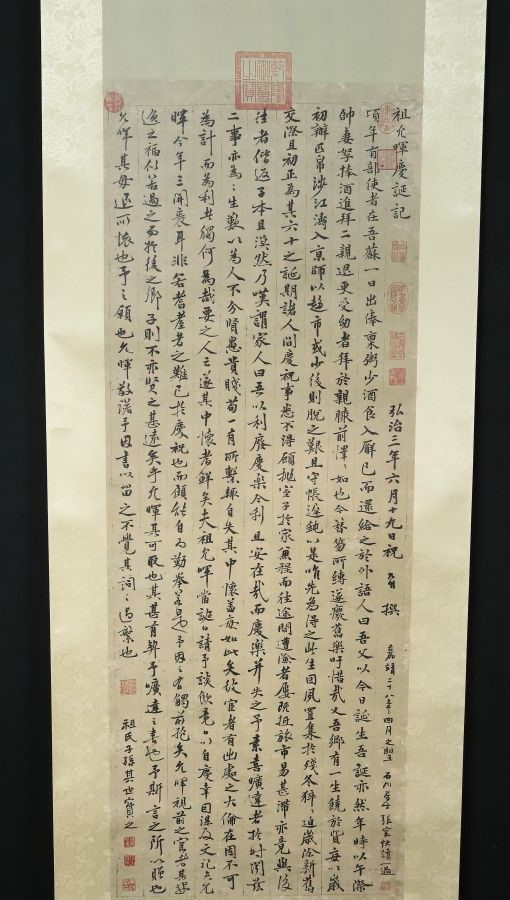 祖允暉慶誕記
弘治三年六月十九日祝 撰
嘉靖二十八年四月之望 石川 張寰快讀一過
頃年有部使者在吾蘇一日出俸稟粥少酒食入廨已而還給之於外語人曰吾父以今日誕生吾誕亦然年時以午際
帥妻孥捧酒進拜二親退更受幼者拜於親膝前懌懌如也今替笏所縛遂廢舊樂吁惜哉又吾鄉有一生饒於貲每以歲
初辦匹帛涉江濤入京師以趨市或少後則脫之艱且守帳遲鈍以是唯先為得之此生因夙置集於殘冬猝迫歲除新舊
交際且初正為其六十之誕期諸人間慶祝事悉不得顧拋室子於家兼程而往途間遭險者屢既抵旅市易甚滯亦竟與後
往者偕返子本且漠然乃嘆謂家人曰吾以利廢慶樂今利且安在哉而慶樂并失之予素喜曠達者於時聞茲
二事亦為之生慜以為人不分賢愚貴賤苟一有所繫輒自失其中懷蓋每如此矣彼官者有出處之大倫在固不可
為計而為利者獨何為哉要之人之遂其中懷者鮮矣夫祖允暉當誕日請予談飲竟日以自慶幸因謀及文記之允
暉今年三開袠耳非若耆耋者之難已於慶祝也而顧能自為勤拳若是予因之有觸前抱矣允暉視前之官者甚遂
適之福似若過之而於後之鄉子則不亦賢之甚遠矣乎允暉其可敬也其甚有契予曠達之 也予斯言之所以贈也
允暉其毋退所懷也予之願也允暉敬諾予因書以留之不覺其詞之過繁也
祖氏子孫其世寶之